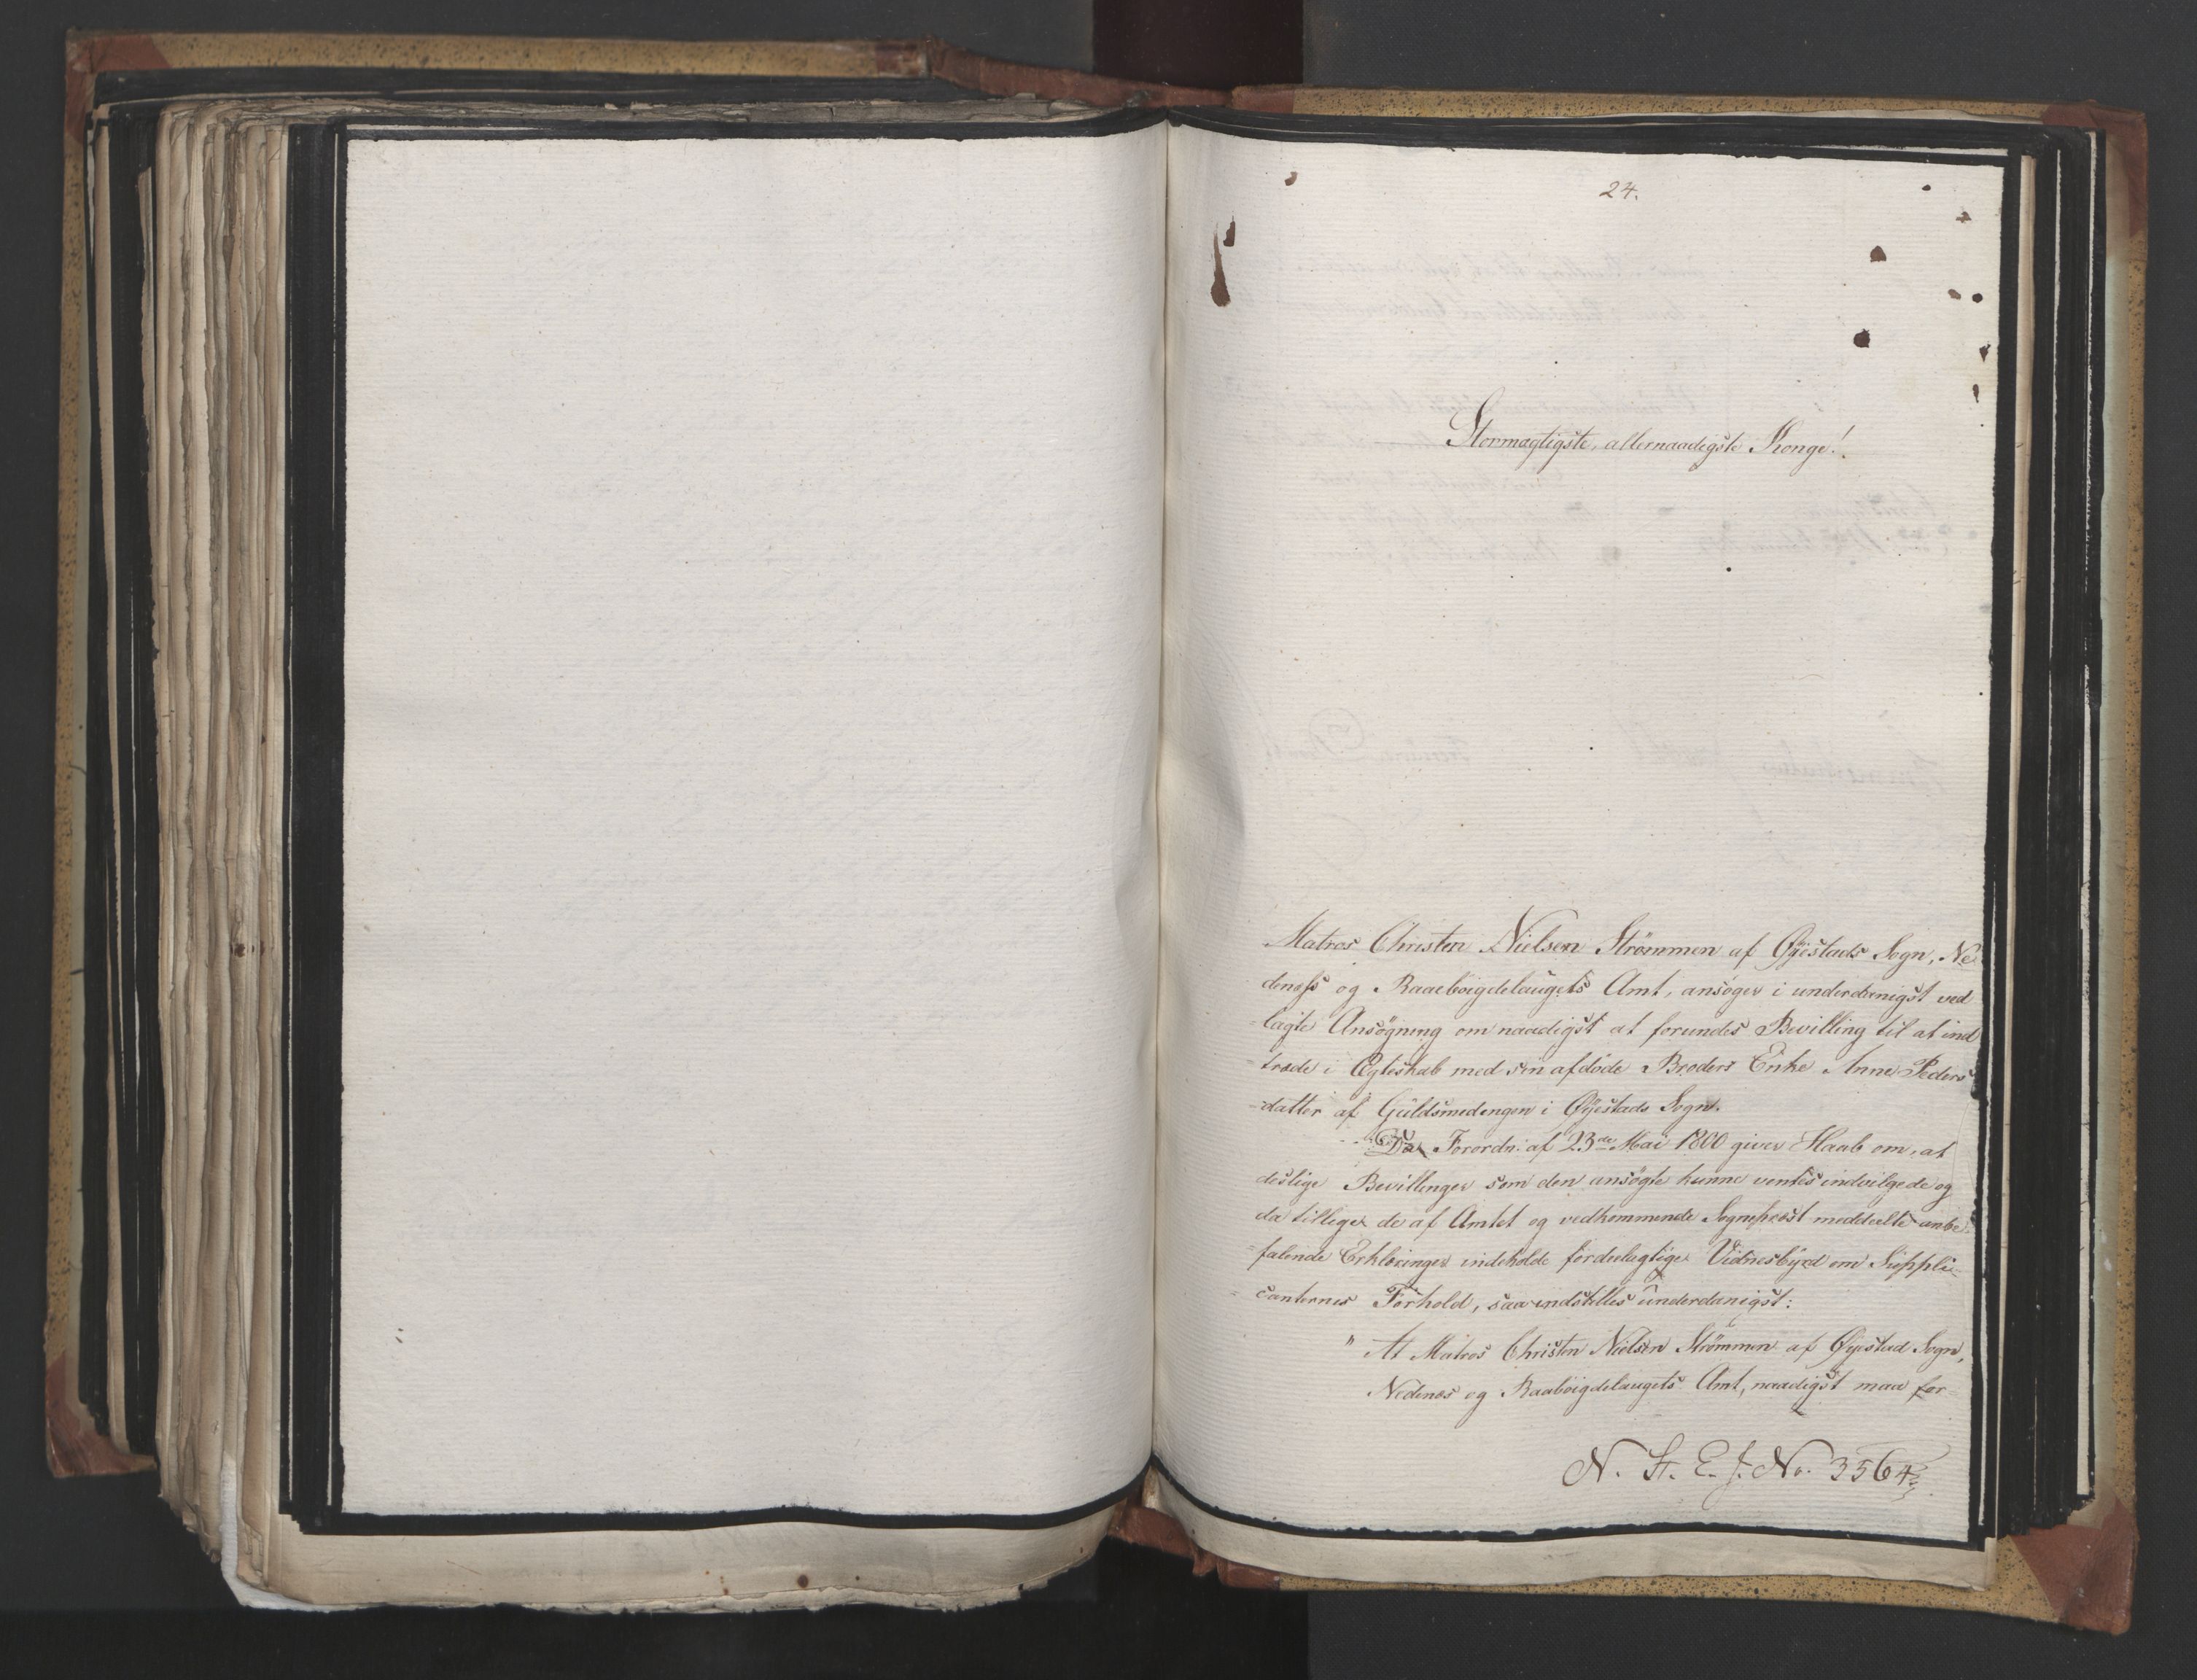 24.
Stormægtigste, allernaadigste Konge!
Matros Christen Nielsen Strømmen af Øÿestads Sogn, Ne
denæss og Raaebøigdelaugets Amt, ansøger i underdanigst ved
-lagte Ansøgning om naadigst at forundes Bevilling til at ind
-træde i Ægteskab med sin afdøde Broders Enke Anne Peders
-datter af Guldsmedengen i Øÿestads Sogn.
Da Forordn: af 23de Mai 1800 giver Haab om, at
deslige Bevillinger som den ansøgte kunne ventes indvilgede og
da tillige de af Amtet og vedkommende Sogneprest meddeelte anbe
-falende Erklæringer indeholde fordeelagtige Vidnesbÿrd om Suppli-
-canternes Forhold, saa indstilles underdanigst:
" At Matros Christen Nielsen Strømmen af Øÿestad Sogn,
Nedenæs og Raabøigdelaugets Amt, naadigst maa for-
N. St. E. J. No. 3564